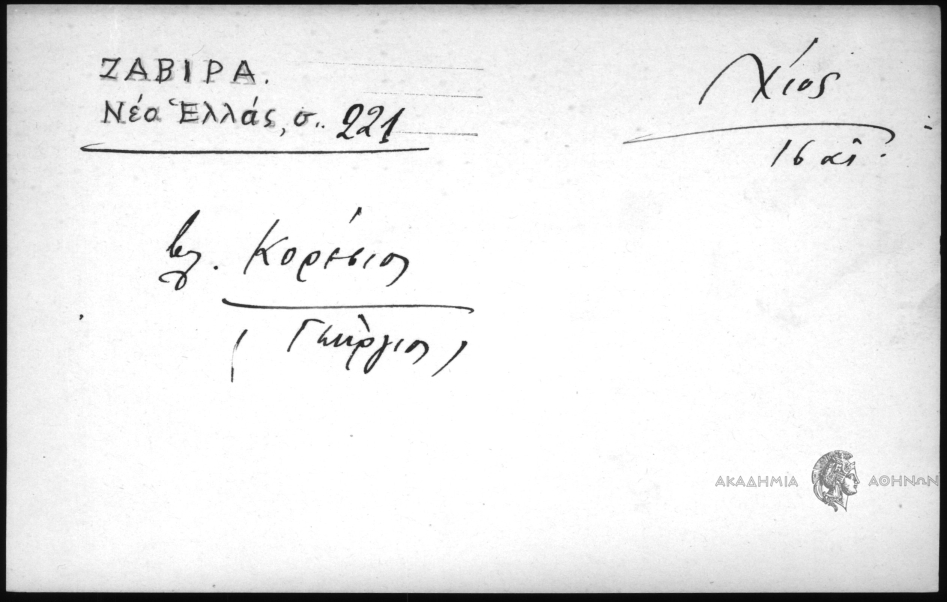 ΖΑΒΙΡΑ.
Νέα Ἑλλάς, σ.. 221
Χίος
16 αἰ.
βλ. Κορέσιος
(Γεώργιος)
ΑΚΑΔΗΜΙΑ ΑΘΗΝΩΝ